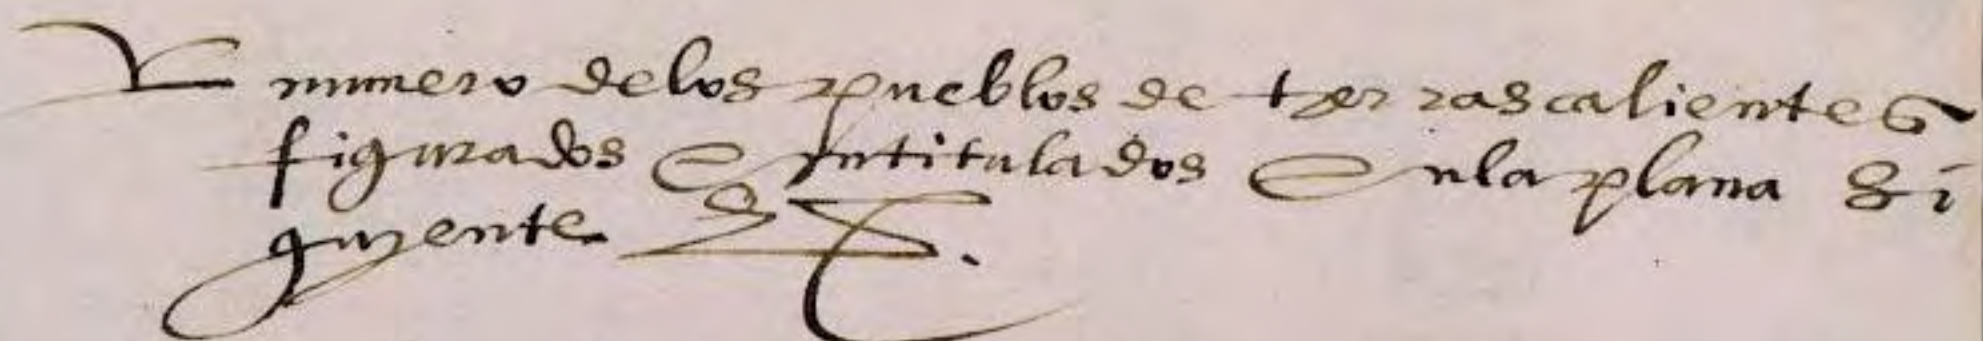 numero de los pueblos de tierras calientes
figurados E yntitulados En la plana Si
guyente